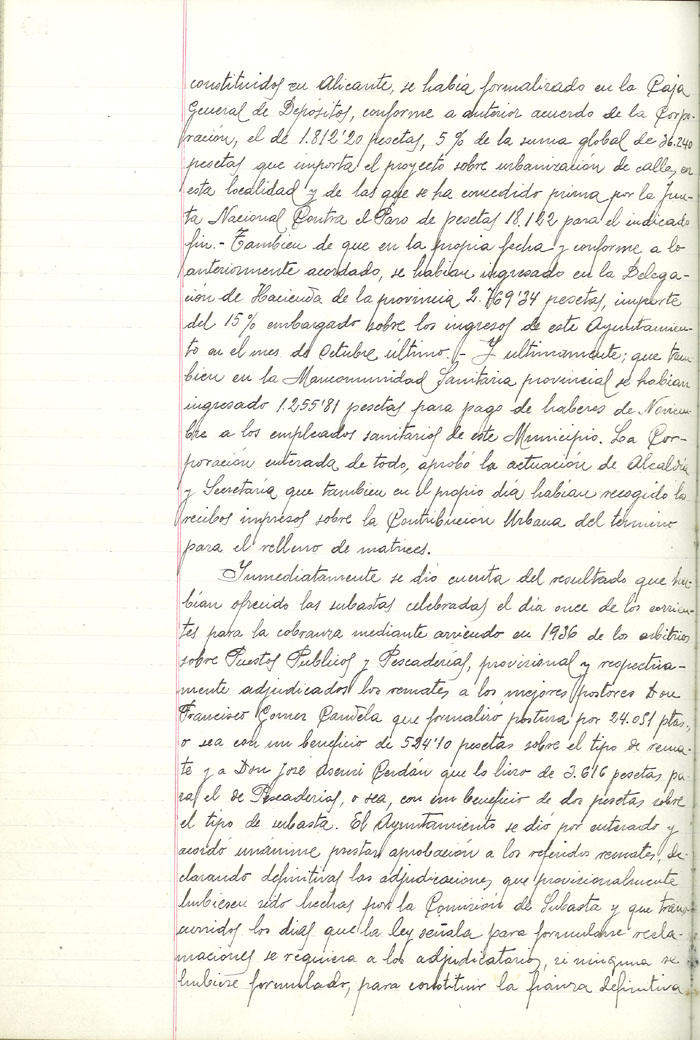 constituidos en Alicante, se había formalizado en la Caja
General de Depósitos, conforme a anterior acuerdo de la Corpo-
ración, el de 1.812'20 pesetas, 5 % de la suma global de 36.240
pesetas que importa el proyecto sobre urbanización de calles en
esta localidad y de las que se ha concedido prima por la Jun-
ta Nacional Contra el Paro de pesetas 18.122 para el indicado
fin.- Tambien de que en la propia fecha y conforme a lo
anteriormente acordado, se habian ingresado en la Delega-
ción de Hacienda de la provincia 2.769'34 pesetas, importe
del 15% embargado sobre los ingresos de este Ayuntamien-
to en el mes de Octubre último.- Y ultimamente; que tam-
bien en la Mancomunidad Sanitaria provincial se habian
ingresado 1.255'81 pesetas para pago de haberes de Noviem-
bre a los empleados sanitarios de este Municipio. La Cor-
poración enterada de todo, aprobó la actuación de Alcaldía
y Secretaría que tambien en el propio día habían recogido los
recibos impresos sobre la Contribución Urbana del término
para el relleno de matrices.
Inmediatamente se dió cuenta del resultado que ha-
bían ofrecido las subastas celebradas el dia once de los corrien-
tes para la cobranza mediante arriendo en 1936 de los arbitrios
sobre Puestos Publicos y Pescaderías, provisional y respectiva-
mente adjudicados los remates a los mejores postores Don
Francisco Gomez Candela que formalizó postura por 24.051 ptas,
o sea con un beneficio de 524'10 pesetas sobre el tipo de rema-
te y a Don José Asensi Cerdán que lo hizo de 3.616 pesetas pa-
ra el de Pescaderías, o sea, con un beneficio de dos pesetas sobre
el tipo de subasta. El Ayuntamiento se dió por enterado y
acordó unánime prestar aprobación a los referidos remates, de-
clarando definitivas las adjudicaciones que provisionalmente
hubiesen sido hechas por la Comisión de Subasta y que trans-
curridos los dias que la ley señala para formularse recla-
maciones se requiera a los adjudicatarios, si ninguna se
hubiese formulado, para constituir la fianza definitiva